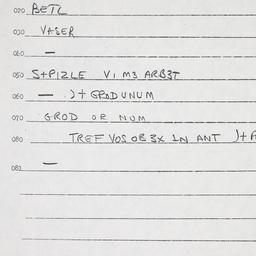 020 BETL
030 VASER
040 —
050 S+PIZLE VI M3 ARB3T
060 — .)+ GRODUNUM
070 GROD OR NUM
080 TREF VOS OB 3X IN ANT )+A
082 —